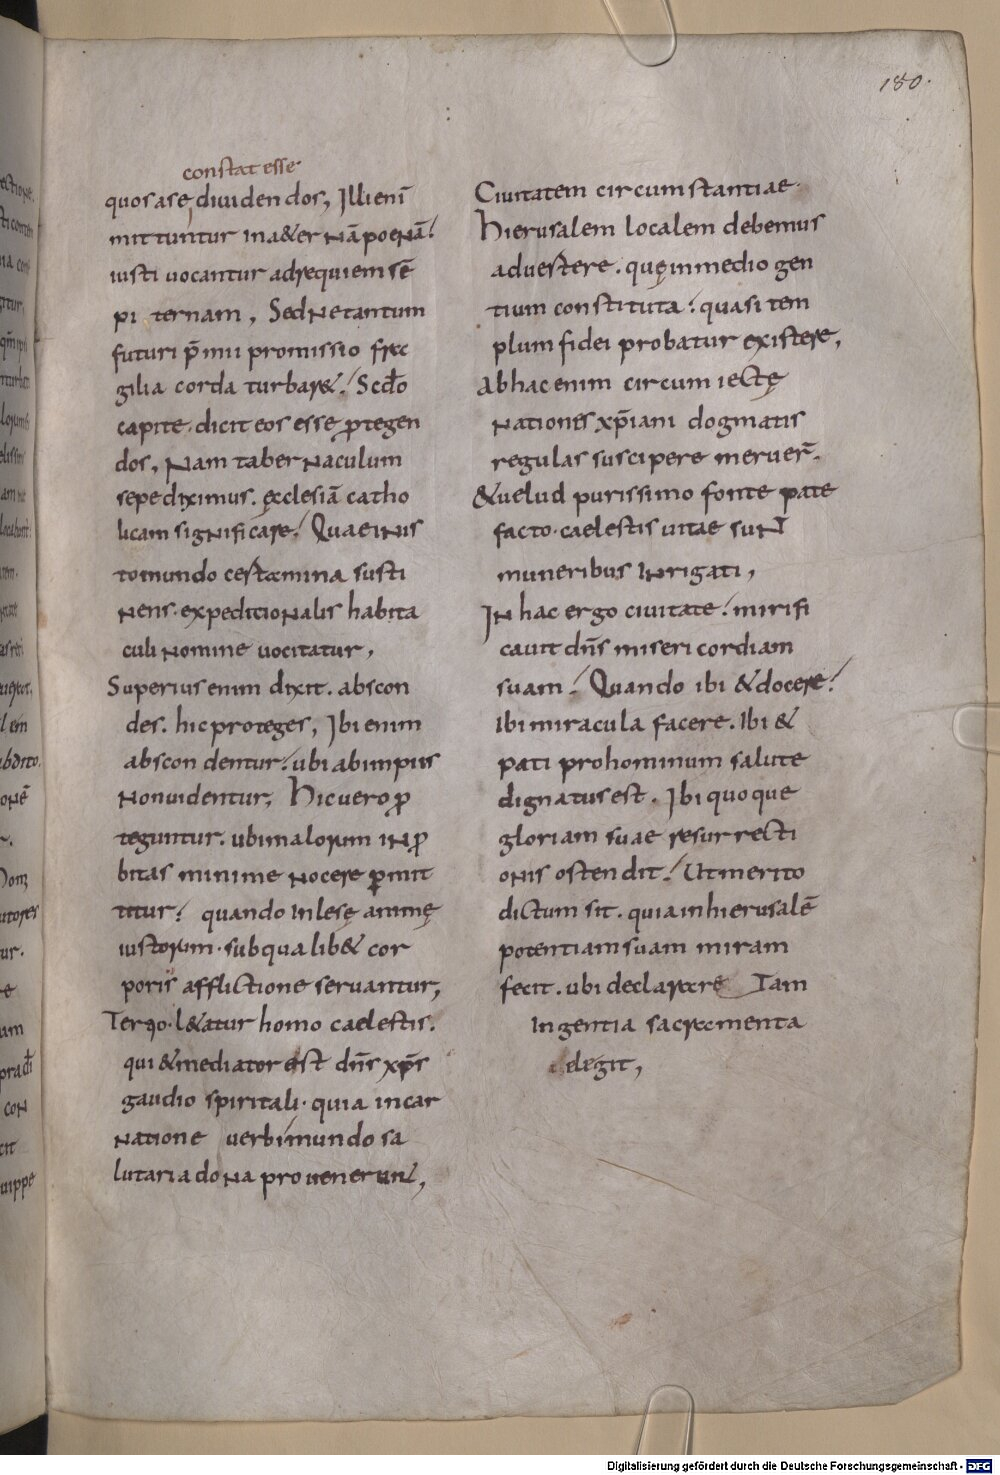 180.
constat esse
quos a se, diuidendos, Illi enī
mittuntur in a&ernā poenā!
iusti uocantur ad requiem sē
pi ternam, Sed ne tantum
futuri p̄mii promissio frac
gilia corda turbar&! Scđo
capite. dicit eos esse ꝓtegen
dos, Nam tabernaculum
sepe diximus. ęcclesiā catho
licam significare! Quae in is
to mundo certamina susti
nens. expeditionalis habita
culi nomine uocitatur,
Superius enim dixit. abscon
des. hic proteges, Ibi enim
abscondentur! ubi ab impiis
non uidentur, Hic uero ꝓ
teguntur. ubi malorum inꝓ
bitas minime nocere ꝑmit
titur! quando inlesę animę
iustorum. sub qualib& cor
poris afflictione seruantur,
Tercio. l&atur homo caelestis.
qui & mediator est dn̄s xp̄s
gaudio spiritali. quia incar
natione uerbi mundo sa
lutaria dona prouenerunt,
Ciuitatem circumstantiae.
Hierusalem localem debemus
aduertere. quę in medio gen
tium constituta! quasi tem
plum fidei probatur existere,
Ab hac enim circumiectę
nationes xp̄iani dogmatis
regulas suscipere meruer̄.
& uelud purissimo fonte pate
facto. caelestis uitae sunt
muneribus inrigati,
In hac ergo ciuitate! mirifi
cauit dn̄s misericordiam
suam! Quando ibi & docere!
Ibi miracula facere. Ibi &
pati pro hominum salute
dignatus est. Ibi quoque
gloriam suae resurrecti
onis ostendit! Ut merito
dictum sit. quia in hierusalē
potentiam suam miram
fecit. ubi declarare Tam
ingentia sacramenta
elegit,
Digitalisierung gefördert durch die Deutsche Forschungsgemeinschaft - DFG